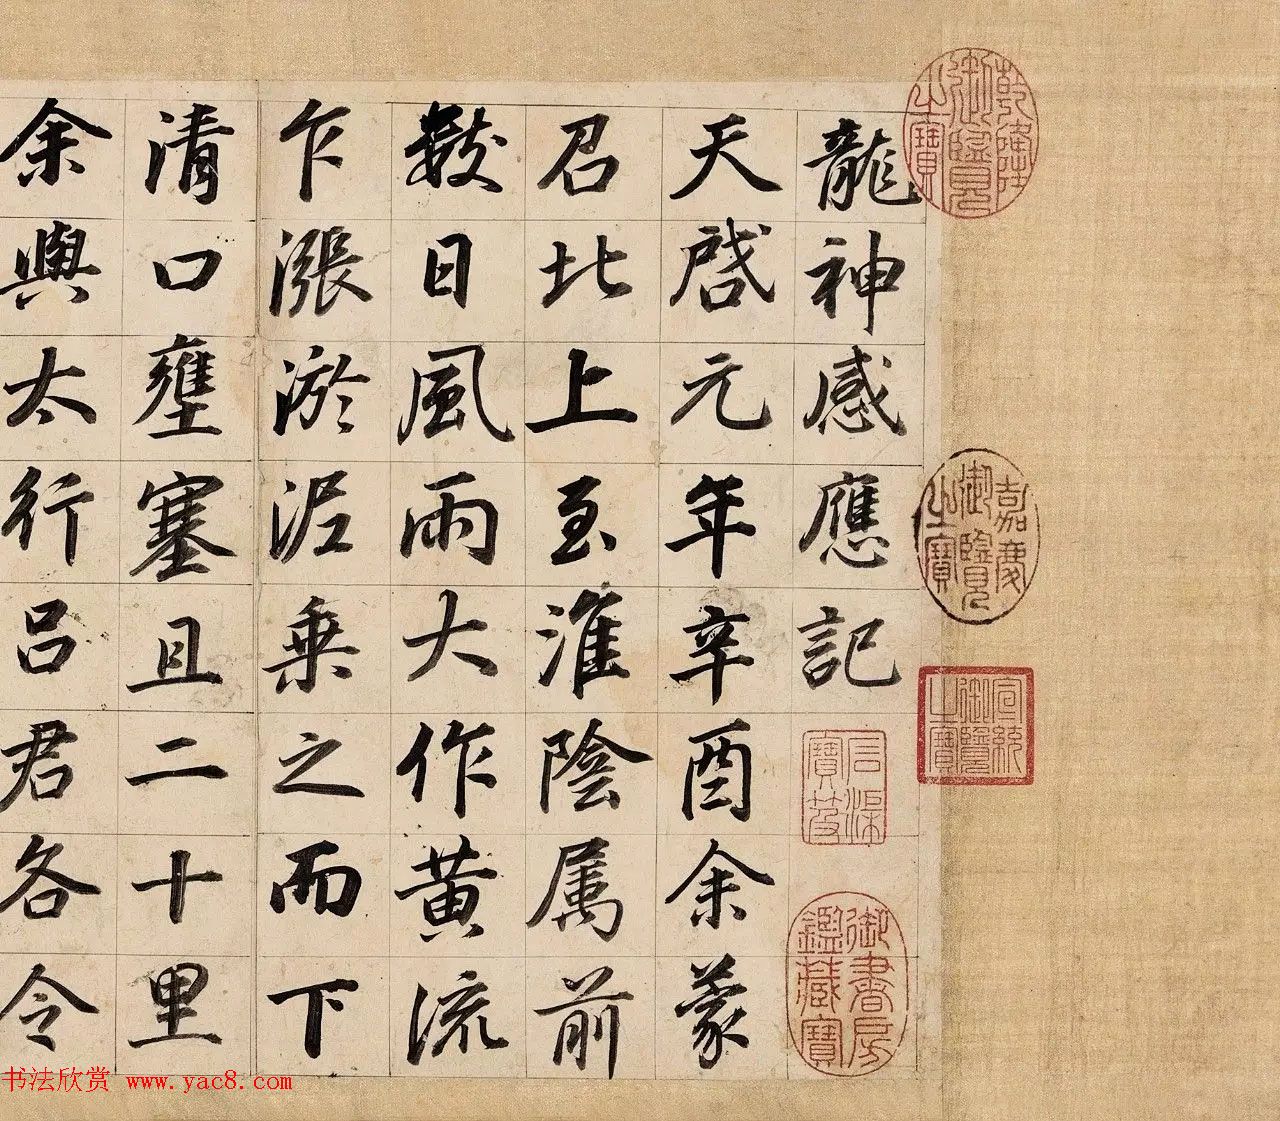 龍神感應記
天啓元年辛酉余蒙
召北上至淮陰属前
數日風雨大作黄流
乍漲淤泥乗之而下
清口壅塞且二十里
余與太行吕君各令
乾隆御覽之寶
嘉慶御覽之寶
宣統御覽之寶
御書房鑑藏寶
书法欣赏 www.yac8.com